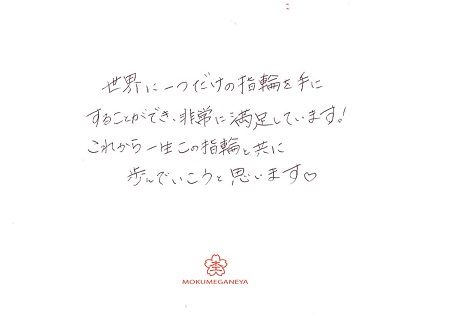 世界に一つだけの指輪を手に
することができ、非常に満足しています!
これから一生この指輪と共に
歩んでいこうと思います♡
MOKUMEGANEYA